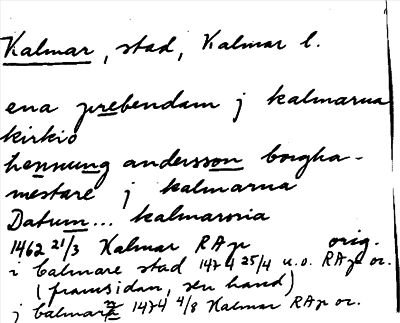 Kalmar, stad, Kalmar l.
ena prebendam j kalmarna
kirkio
hennung andersson borgha-
mestare j kalmarna
Datum... kalmaroria
1462 21/3 Kalmar RAp orig.
i Calmare stad 1474 25/4 u.o. RAp or.
(framsidan, sen hand)
j Calmar 1474 4/8 Kalmar RAp or.